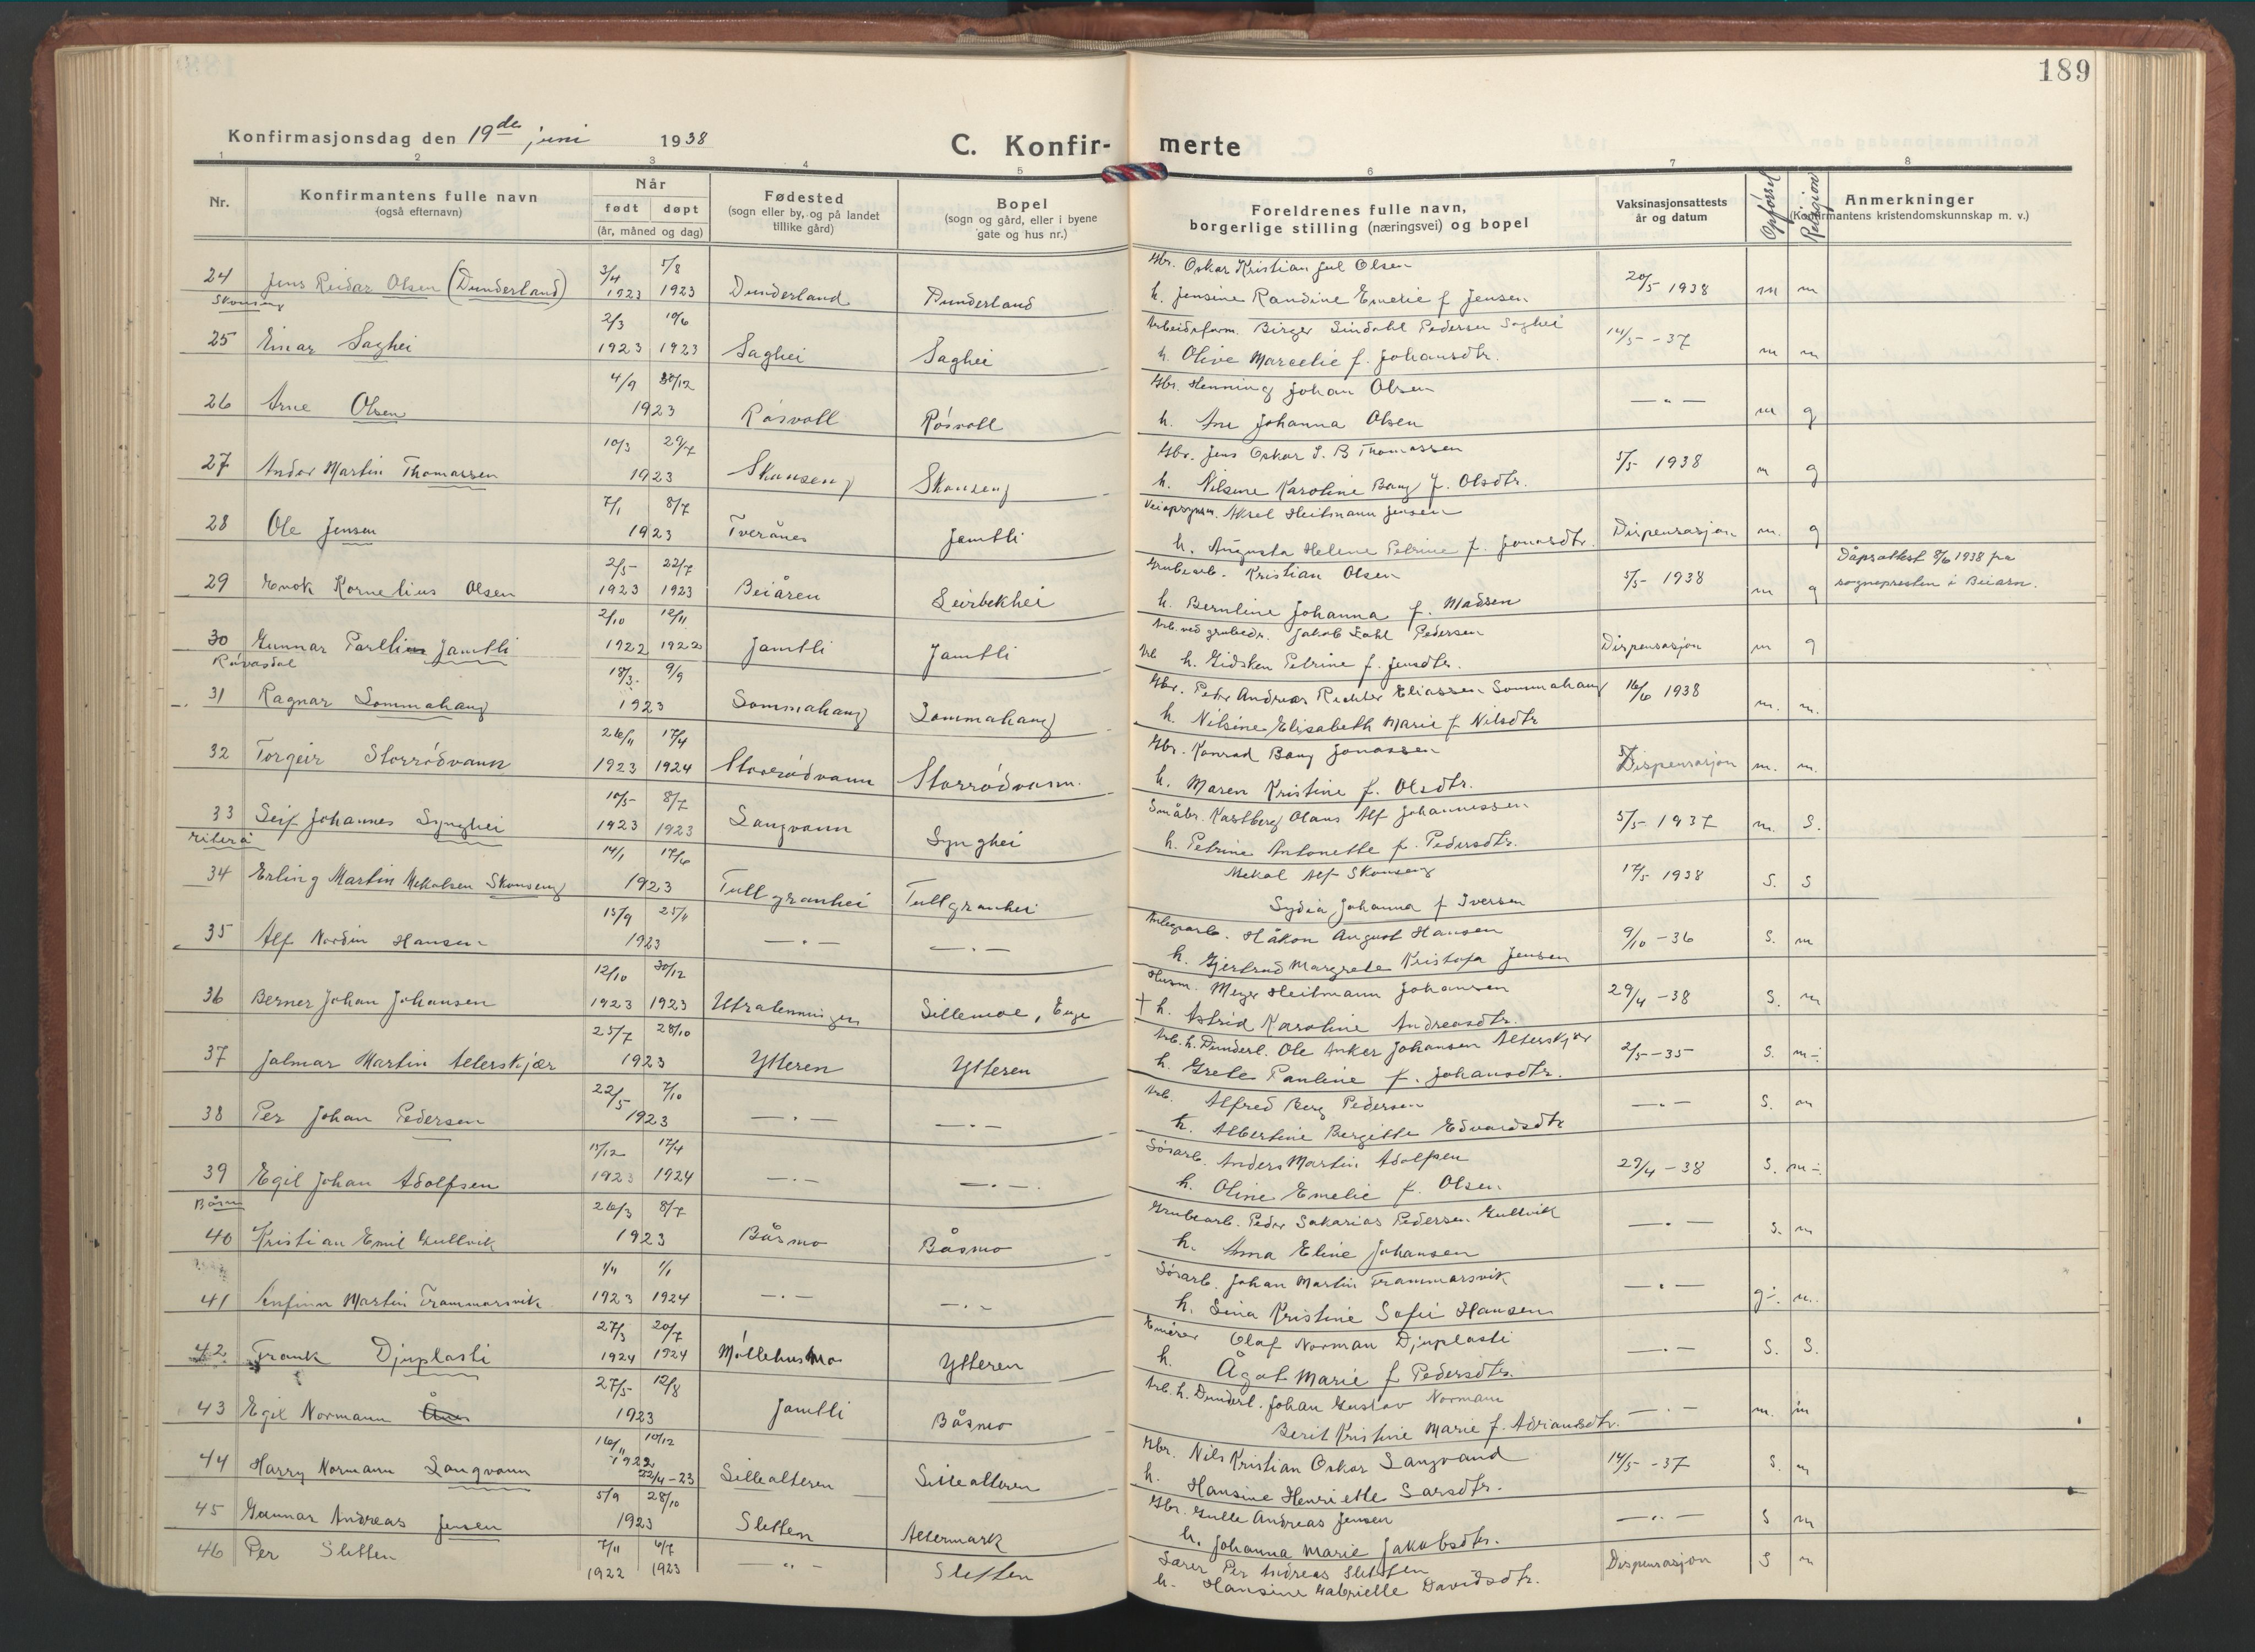 189
Konfirmasjonsdag den 19de juni 1938
C. Konfir- merte
1 2 3 4 5 6 7 8
Nr.
Konfirmantens fulle navn
(også efternavn)
Når
født døpt
(år, måned og dag)
Fødested
(sogn eller by, og på landet
tillike gård)
Bopel
(sogn og gård, eller i byene
gate og hus nr.)
Foreldrenes fulle navn,
borgerlige stilling (næringsvei) og bopel
Vaksinasjonsattests
år og datum
Opførsel
Religion
Anmerkninger
(Konfirmantens kristendomskunnskap m. v.)
24 Jens Reidar Olsen (Dunderland) 3/4 1923 5/8 1923 Dunderland Dunderland
Gbr. Oskar Kristian Juel Olsen
h. Jensine Randine Emelie f Jensen 20/5 1938 m m
Skonseng
25 Einar Saghei 2/3 1923 10/6 1923 Saghei Saghei
Arbeidsform. Birger Lindahl Pedersen Saghei
h. Olive Marcelie f. Johansdtr. 14/5 -37 m m
26 Arne Olsen 4/9 30/12 1923 Røsvoll Røsvoll
Gbr. Henning Johan Olsen
h. Ane Johanna Olsen — " — m g
27 Andor Martin Thomassen 10/3 29/7 1923 Skonseng Skonseng
Gbr. Jens Oskar S. B Thomassen
h. Nilsine Karoline Bang f. Olsdtr. 5/5 1938 m g
28 Ole Jensen 7/1 8/7 1923 Tverånes Jamtli
Veiopsynsm. Aksel Heitmann Jensen
h. Augusta Helene Petrine f. Jonasdtr. Dispensasjon m. g
29 Enok Kornelius Olsen 2/5 1923 22/7 1923 Beiåren Leirbekhei
Grubearb. Kristian Olsen
h. Bernline Johanna f. Madsen 5/5 1938 m g
Dåpsattest 8/6 1938 fra
sognepresten i Beiarn.
30 Gunnar Parelius Jamtli 2/10 1922 12/11 1922 Jamtli Jamtli
Arb. ved grubedr. Jakob Dahl Pedersen
h. Gidsken Petrine f. Jensdtr. Dispensasjon m g
Røvasdal
31 Ragnar Sommahaug 18/3 9/9 1923 Sommahaug Sommahaug
Gbr. Peder Andreas Richter Eliassen Sommahaug
h. Nilsine Elisabeth Marie f Nilsdtr 16/6 1938 m. m.
32 Torgeir Storrødvann 26/11 1923 17/4 1924 Storrødvann Storrødvann.
Gbr. Konrad Bang Jonassen
h. Maren Kristine f. Olsdtr. Dispensasjon m. m.
33 Leif Johannes Synghei 10/5 1923 8/7 1923 Langvann Synghei
Småbr. Kastberg Olaus Alf Johannessen
h. Petrine Antonette f. Pedersdtr. 5/5 1937 m. S.
34 Erling Martin Mekalsen Skonseng 14/1 17/6 1923 Tullgranhei Tullgranhei
Mekal Alf Skonseng
Lydia Johanna f Iversen 17/5 1938 S. S
35 Alf Nordin Hansen 15/9 25/11 1923 — " — — " —
Anlegsarb. Håkon August Hansen
h. Gjertrud Margrete Kristofa Jensen 9/10 -36 S. m
36 Berner Johan Johansen 12/10 1923 30/12 1923 Utralenningen Sillemoe, Enge
Husm. Meyer Heitmann Johansen
+ h. Astrid Karoline Andreasdtr. 29/4 -38 S. m
37 Jalmar Martin Alterskjær 25/7 28/10 1923 Ytteren Ytteren
Arb. h. Dunderl. Ole Anker Johansen Alterskjær
h. Grete Pauline f. Johansdtr. 2/5 -35 S. m÷
38 Per Johan Pedersen 22/5 7/10 1923 — " — — " —
Arb. Alfred Berg Pedersen
h. Albertine Bergitte Edvardsdtr — " — S. m
39 Egil Johan Adolfsen 15/12 1923 17/4 1924 — " — — " —
Sørarb. Anders Martin Adolfsen
h. Oline Emelie f. Olsen 29/4 -38 S. m÷
Båsm
40 Kristian Emil Gullvik 26/3 8/7 1923 Båsmo Båsmo
Grubearb. Peder Sakarias Pedersen Gullvik
h. Anna Eline Johansen — " — S. m
41 Arnfinn Martin Frammarsvik 1/11 1923 1/1 1924 — " — — " —
Sørarb. Johan Martin Frammarsvik
h. Lina Kristine Sofie Hansen — " — g÷. m.
42 Frank Djuplasti 27/3 1924 20/7 1924 Møllehusmo Ytteren
Olaf Norman Djuplasti
h. Ågot Marie f Pedersdtr. — " — S. S.
43 Egil Normann 27/5 12/8 1923 Jamtli Båsmo
Arb. h. Dunderl. Johan Gustav Normann
Berit Kristine Marie f. Adriansdtr. — " — m. m
44 Harry Normann Langvann 16/11 10/12 1922 22/4-23 Sillealteren Sillealteren
Gbr. Nils Kristian Oskar Langvand
h. Hansine Henriette Larsdtr. 14/5 -37 S. m
45 Gunnar Andreas Jensen 5/9 28/10 1923 Sletten Altermark
Gbr. Gulle Andreas Jensen
h. Johanna Marie Jakobsdtr. — " — S m
46 Per Sletten 7/11 1922 6/7 1923 — " — Sletten
Lærer Per Andreas Sletten
h. Hansine Gabrielle Davidsdtr. Dispensasjon S m